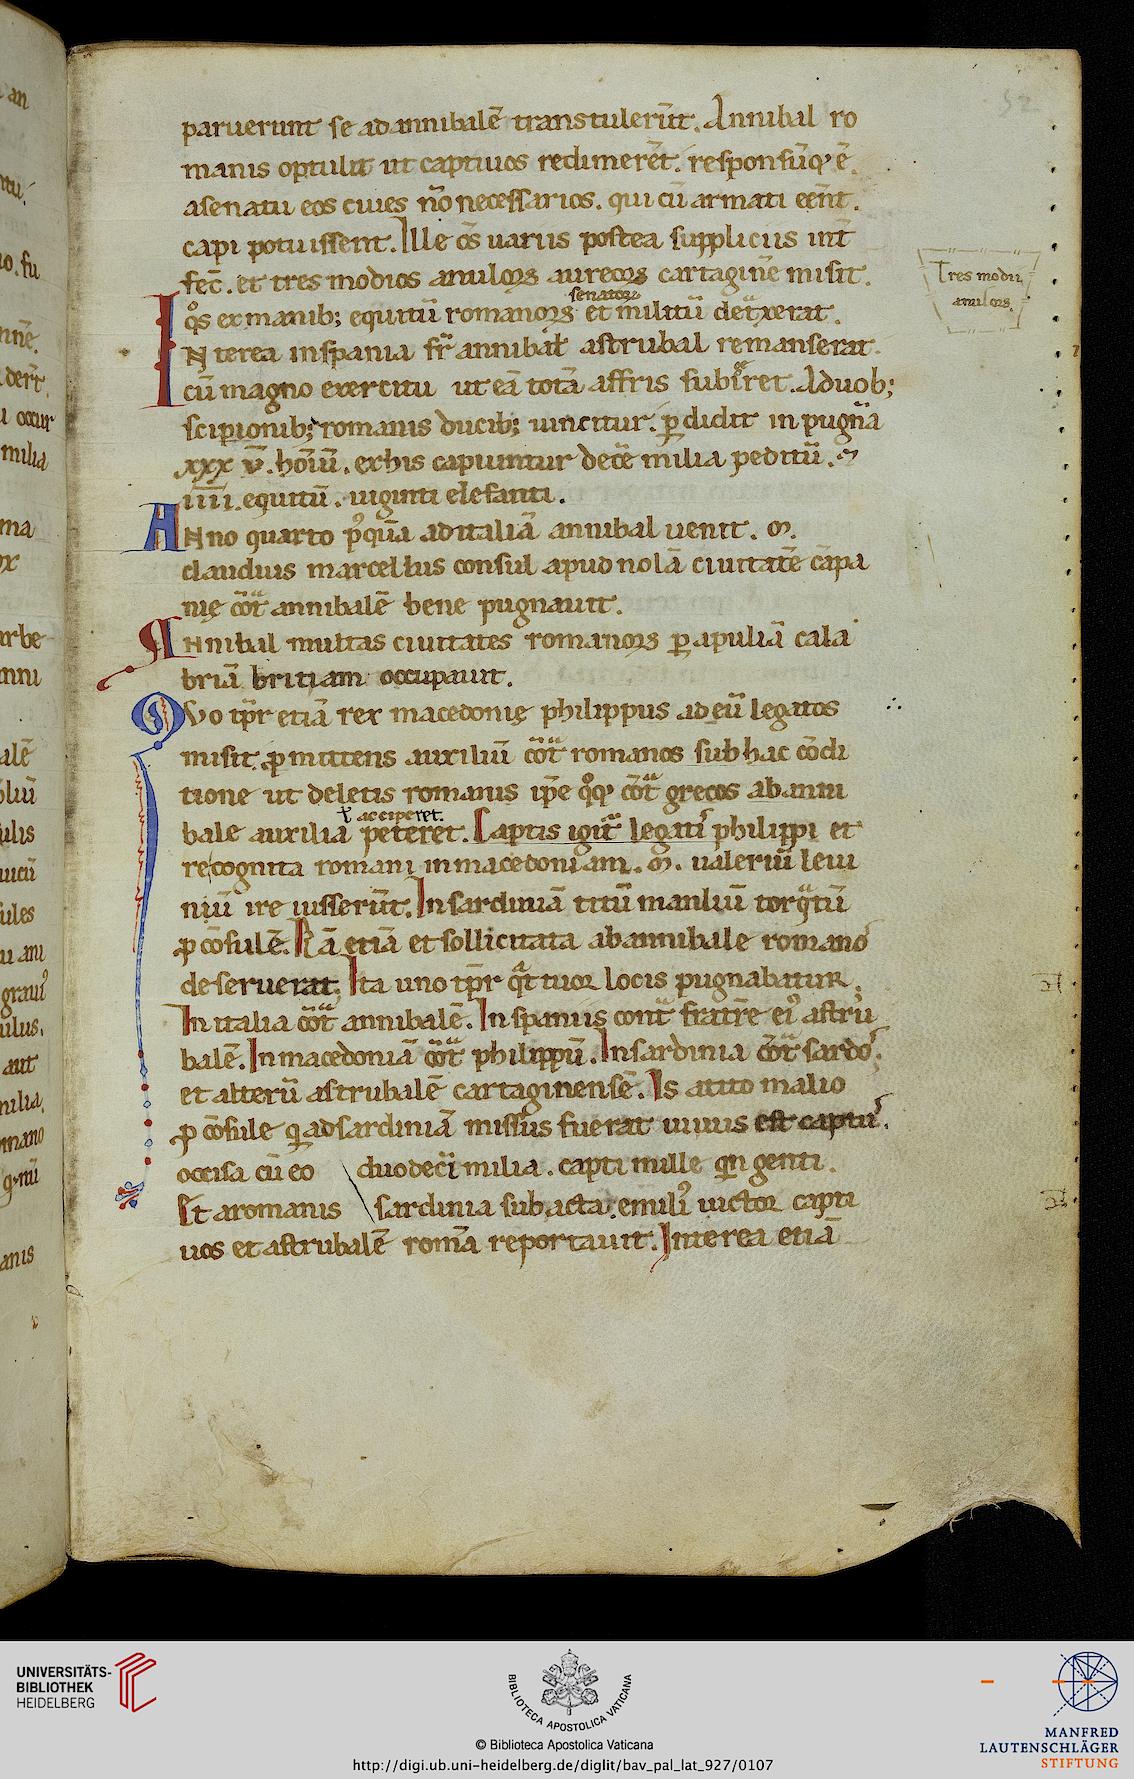 52
paruerunt se ad annibalē transtulerūt. Annibal ro
manis optulit ut captiuos redimerēt. responsūq; ē
a senatu eos ciues nō necessarios. qui cū armati eēnt.
capi potuissent. Ille os̄ uariis postea suppliciis int̄
fec̄. et tres modios anuloꝝ aureoꝝ cartaginē misit.
Tres modii
anuloꝝ
senatoꝝ
qͦs ex manib; equitū romanoꝝ et militū detͣxerat.
Interea inspania fr̄ annibaƚ astrubal remanserat.
cū magno exercitu ut eā totā affris subigͥret. A duob;
scipionib; romanis ducib; uincitur. ꝑdidit in pugna
xxx v̄. hoīū. ex his capiuntur decē milia peditū. ⁊
iiii. equitū. uiginti elefanti.
Anno quarto p̾quā ad italiā annibal uenit. m.
claudius marcellus consul apud nolā ciuitatē cāpa
nię cōtͣ annibalē bene pugnauit.
Annibal multas ciuitates romanoꝝ ꝑ apuliā cala
briā britiam occupauit.
Quo tp̄r etiā rex macedonię philippus ad eū legatos
misit. ꝓmittens auxiliū cōtͣ romanos sub hac cōdi
tione ut deletis romanis ip̄e qͦq; cōtͣ grecos ab anni
ł acciperet.
bale auxilia peteret. Captis igitͬ legatis philippi et
re cognita romani in macedoniam. m. ualeriū leui
niū ire iusserūt. In sardiniā titū manliū torqͣtū
ꝓcōsulē. Nā etiā et sollicitata ab annibale romanos
deseruerat. Ita uno tp̄r qͣttuor locis pugnabatur.
In italia cōtͣ annibalē. In spaniis contͣ fratrē ei᾽ astru
balē. In macedoniā cōtͣ philippū. In sardinia cōtͣ sardos.
et alterū astrubalē cartaginensē. Is a tito malio
ꝓcōsule qͥ ad sardiniā missus fuerat uiuus est captus.
occisa cū eo duodecī milia. capti mille qͥngenti.
Et a romanis sardinia subacta. emili᾽ uictor capti
uos et astrubalē romā reportauit. Interea etiā
UNIVERSITÄTS-
BIBLIOTHEK
HEIDELBERG
BIBLIOTECA APOSTOLICA VATICANA
© Biblioteca Apostolica Vaticana
http://digi.ub.uni-heidelberg.de/diglit/bav_pal_lat_927/0107
MANFRED
LAUTENSCHLÄGER
STIFTUNG